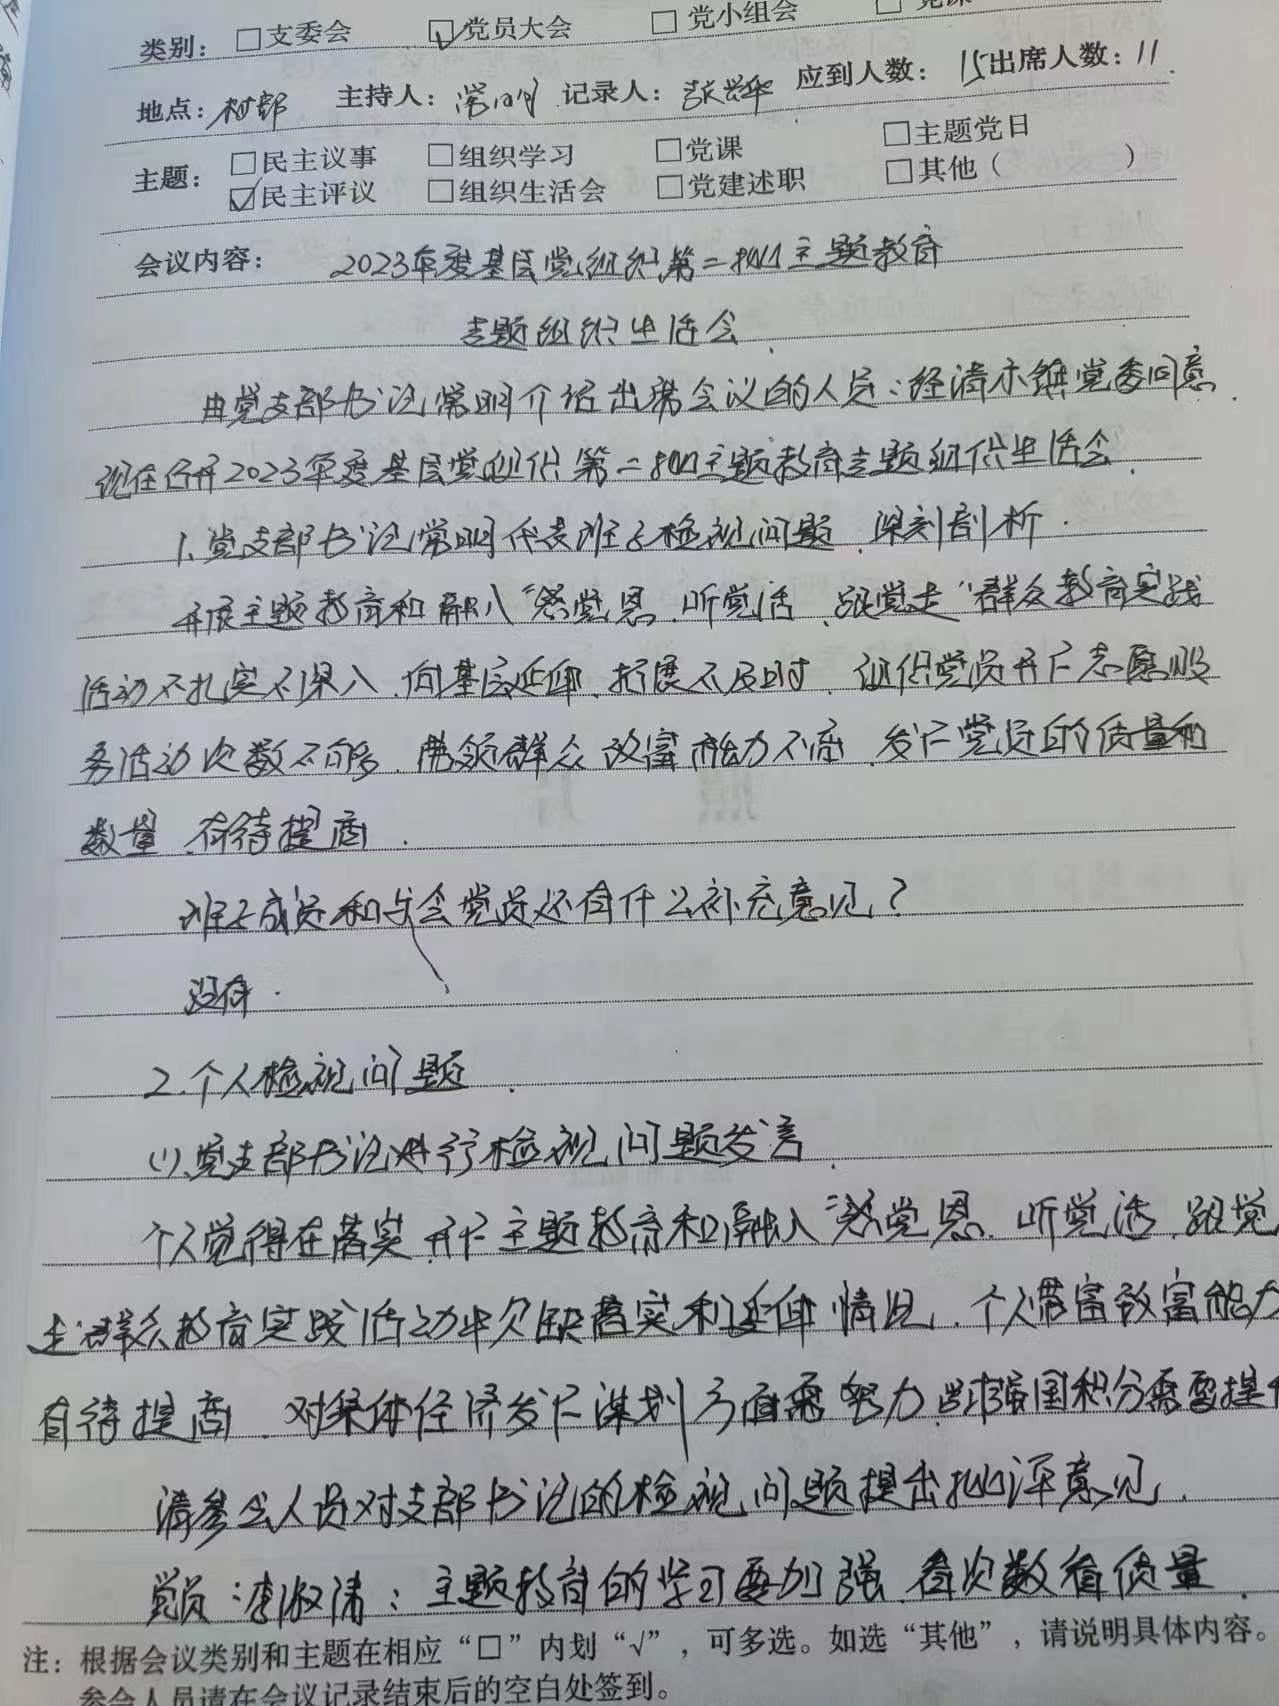 类别：□支委会 ☑党员大会 □党小组会 □党课
地点：村部 主持人：常明 记录人：张兴华 应到人数：15 出席人数：11
主题：□民主议事 □组织学习 □党课 □主题党日
☑民主评议 □组织生活会 □党建述职 □其他（ ）
会议内容： 2023年度基层党组织第二批主题教育
专题组织生活会
由党支部书记常明介绍出席会议的人员：经请示镇党委同意.
现在召开2023年度基层党组织第二批主题教育专题组织生活会.
1、党支部书记常明代表班子检视问题、深刻剖析.
开展主题教育和融入“感党恩、听党话、跟党走”群众教育实践
活动不扎实不深入、向基层延伸、拓展不及时、组织党员开展志愿服
务活动次数不够、带领群众致富能力不高、发展党员的质量和
数量、有待提高.
班子成员和与会党员还有什么补充意见？
没有.
2.个人检视问题.
⑴、党支部书记进行检视问题发言.
个人觉得在落实开展主题教育和融入“感党恩、听党话、跟党
走”群众教育实践活动中欠缺落实和延伸情况、个人带富致富能力
有待提高、对集体经济发展谋划方面需努力、学习强国积分需要提
请参会人员对支部书记的检视问题提出批评意见.
党员：李淑清：主题教育的学习要加强、看次数看质量.
注：根据会议类别和主题在相应“□”内划“√”，可多选。如选“其他”，请说明具体内容。
参会人员请在会议记录结束后的空白处签到。